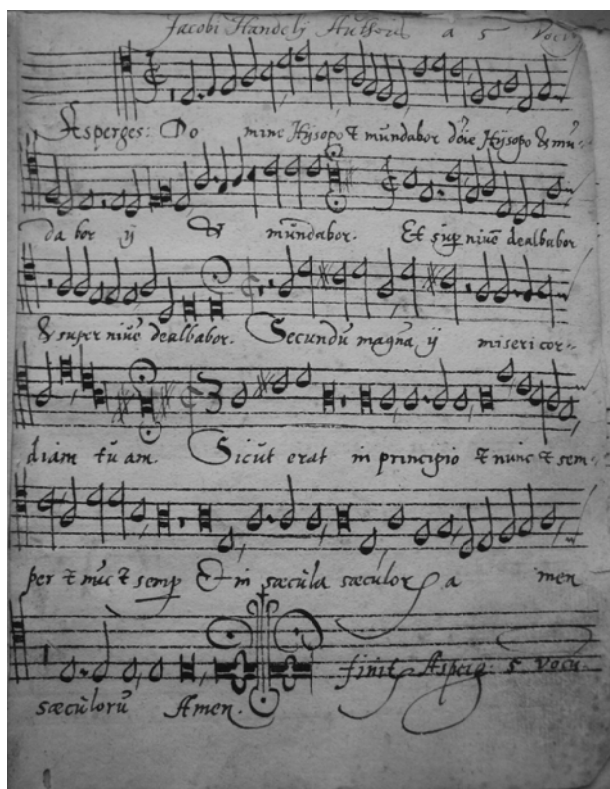 Jacobi Handelij Authoris a 5 Vocu
Asperges: Do mine Hÿsopo & mūndabor dōie Hÿsopo & mū-
da bor ij & mūndabor. Et sup niuē dealbabor
& super niuē dealbabor. Secundū magnā ij misericor-
diam tuam. Sicut erat in principio & nunc & sem-
per & nūc & semp Et in sæcula sæculor a men
sæculorū Amen. finit Asperg: 5 Vocū.